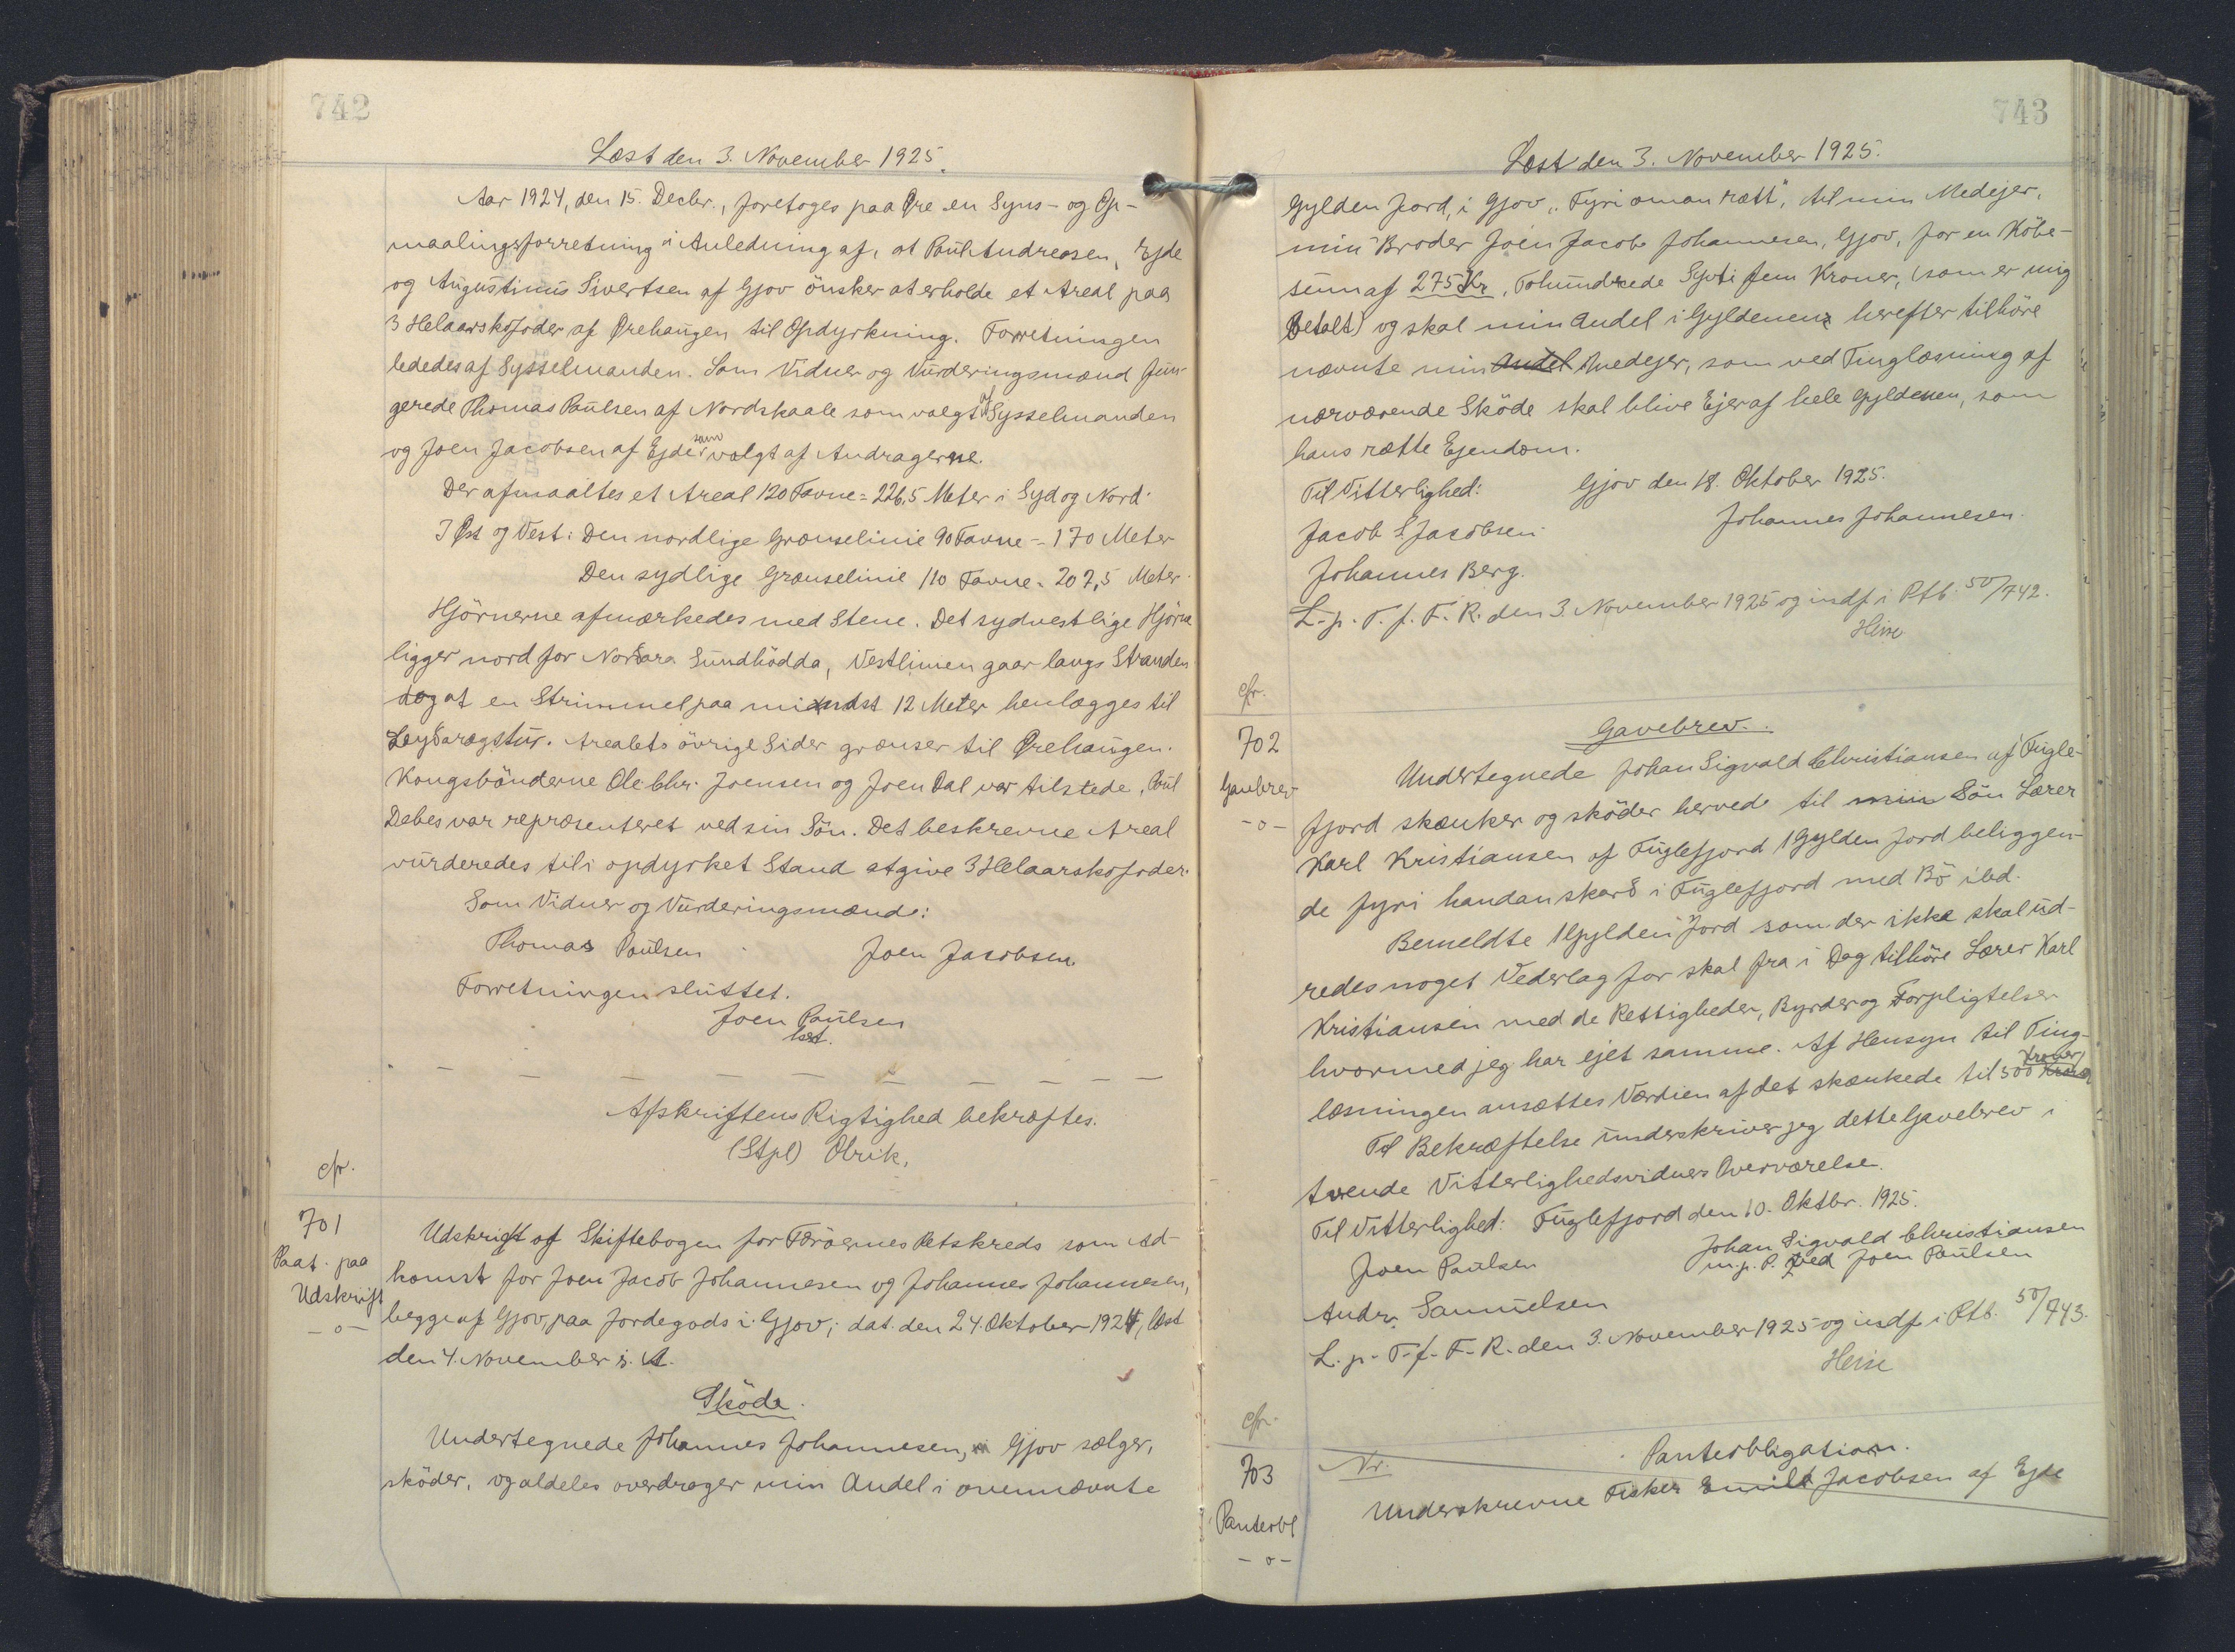 742
Læst den 3. November 1925.
Aar 1924, den 15. Decbr., foretoges paa Øre en Syns- og Op-
maalingsforretning i Anledning af, at Poul Andreasen, Ejde
og Augustinus Sivertsen af Gjov ønsker at erholde et Areal paa
3 Helaarskofoder af Ørehaugen til Opdyrkning. Forretningen
lededes af Sysselmanden. Som Vidner og Vurderingsmænd fun-
gerede Thomas Paulsen af Nordskaale som valgt af Sysselmanden
og Joen Jacobsen af Ejde som valgt af Andragerne.
Der afmaaltes et Areal 120 Favne = 226,5 Meter i Syd og Nord.
I Øst og Vest: Den nordlige Grænselinie 90 Favne = 170 Meter
Den sydlige Grænselinie 110 Favne = 207,5 Meter.
Hjörnerne afmærkedes med Stene. Det sydvestlige Hjörne
ligger nord for Norðara Sundhödda, Vestlinien gaar langs Stranden
dog at en Strimmel paa mindst 12 Meter henlægges til
Leyðaragstur. Arealets övrige Sider grænser til Ørehaugen.
Kongsbönderne Ole Chr. Joensen og Joen Dal var tilstede, Poul
Debes var repræsenteret ved sin Sön. Det beskrevne Areal
vurderedes til i opdyrket Stand at give 3 Helaarskofoder.
Som Vidner og Vurderingsmænd:
Thomas Poulsen Joen Jacobsen
Forretningen sluttet.
Joen Poulsen
bst.
Afskriftens Rigtighed bekræftes.
(Stpl) Olrik.
cfr.
701
Paat. paa
Udskrift
-o-
Udskrift af Skiftebogen for Færøernes Retskreds som Ad-
komst for Joen Jacob Johannesen og Johannes Johannesen,
begge af Gjov, paa Jordegods i Gjov, dat. den 24. Oktober 1924, læst
den 4. November s. A.
Sköde.
Undertegnede Johannes Johannesen, Gjov sælger,
sköder, og aldeles overdrager min Andel i ovennævnte
743
Læst den 3. November 1925.
Gylden Jord, i Gjov „Fyri oman rætt“, til min Medejer,
min Broder Joen Jacob Johannesen, Gjov, for en Köbe-
sum af 275 Kr, Tohundrede Syvti fem Kroner, (som er mig
betalt) og skal min Andel i Gyldenen herefter tilhöre
nævnte min Andel Medejer, som ved Tinglæsning af
nærværende Sköde skal blive Ejer af hele Gyldenen, som
hans rætte Ejendom.
Til Vitterlighed: Gjov den 18. Oktober 1925.
Jacob S. Jacobsen Johannes Johannesen.
Johannes Berg.
L. p. T. f. F. R. den 3. November 1925 og indf i Ptb. 50/742.
Heise
cfr.
702
Gavebrev
-o-
Gavebrev.
Undertegnede Johan Sigvald Christiansen af Fugle-
fjord skænker og sköder herved til min Sön Lærer
Karl Kristiansen af Fuglefjord 1 Gylden Jord beliggen-
de fyri handan skarð i Fuglefjord med Bö ibd.
Bemeldte 1 Gylden Jord som der ikke skal ud-
redes noget Vederlag for skal fra i Dag tilhöre Lærer Karl
Kristiansen med de Rettigheder, Byrder og Forpligtelser
hvormed jeg har ejet samme. Af Hensyn til Ting-
læsningen ansættes Værdien af det skænkede til 500 Kroner
Til Bekræftelse underskriver jeg dette Gavebrev i
tvende Vitterlighedsvidners Overværelse.
Til Vitterlighed: Fuglefjord den 10. Oktbr. 1925.
Joen Poulsen Johan Sigvald Christiansen
m. p. P. ved Joen Poulsen
Andr. Samuelsen
L. p. T. f. F. R. den 3. November 1925 og indf i Ptb. 50/743.
Heise
cfr.
703
Panteobl
-o-
Nr. Panteobligation.
Underskrevne Fisker Emil Jacobsen af Ejde